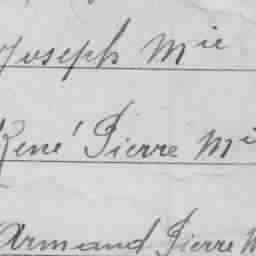 Joseph Mie
René Pierre Mi
Armand Pierre M